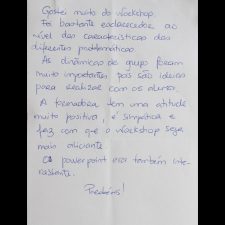 Gostei muito do workshop.
Foi bastante esclarecedor ao
nível das características das
diferentes problemáticas.
As dinâmicas de grupo foram
muito importantes pois são ideias
para realizar com os alunos.
A formadora tem uma atitude
muito positiva, é simpática e
faz com que o workshop seja
mais aliciante.
O powerpoint era também inte-
ressante.
Parabéns!